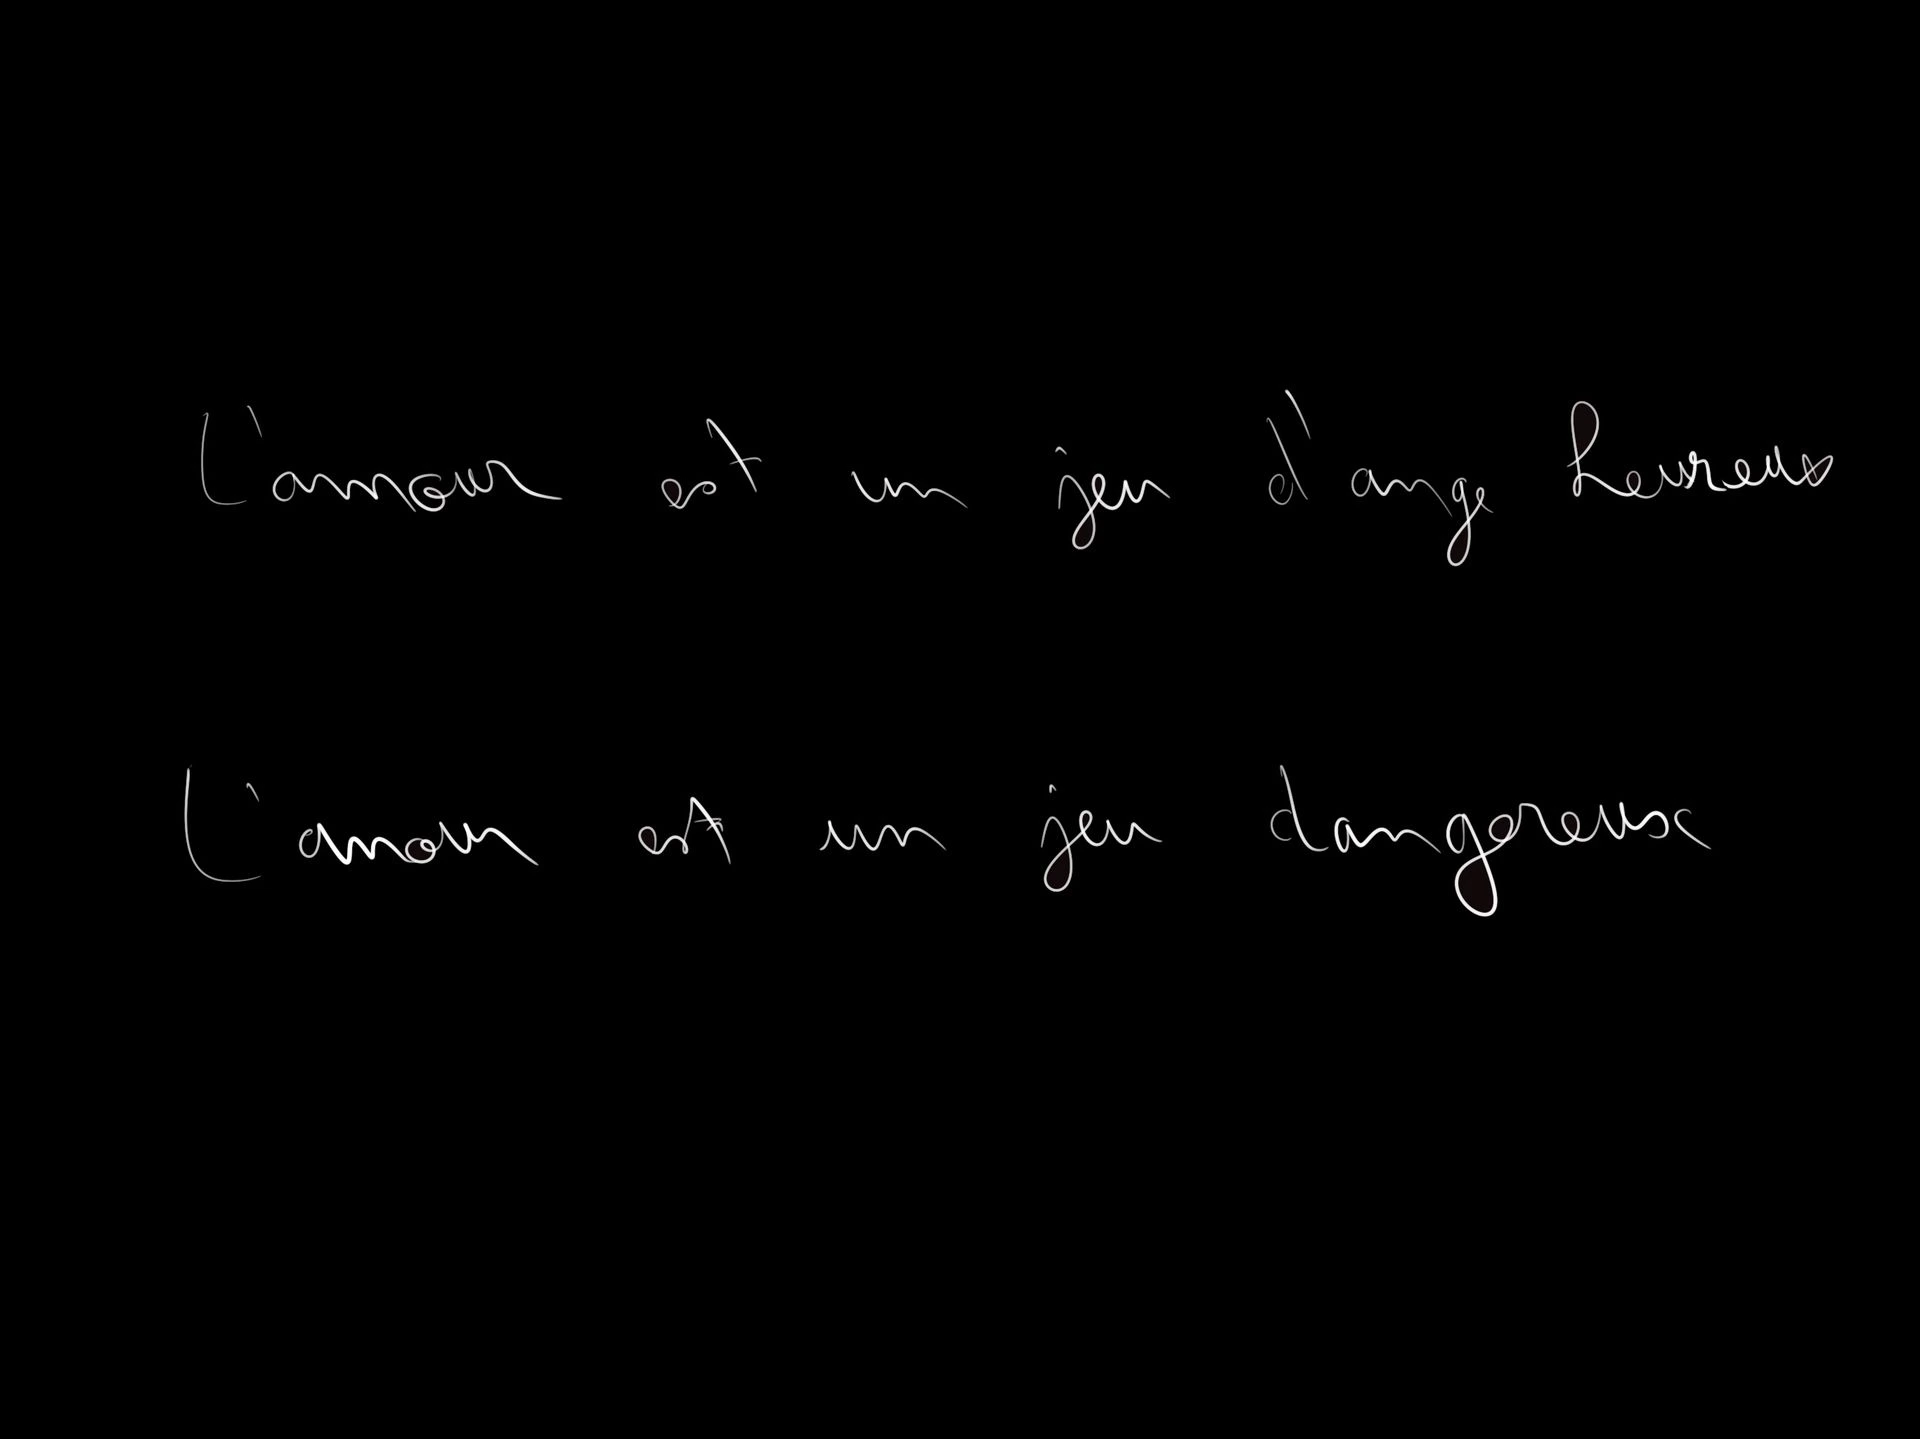 L'amour est un jeu d'ange heureux
L'amour est un jeu dangereux